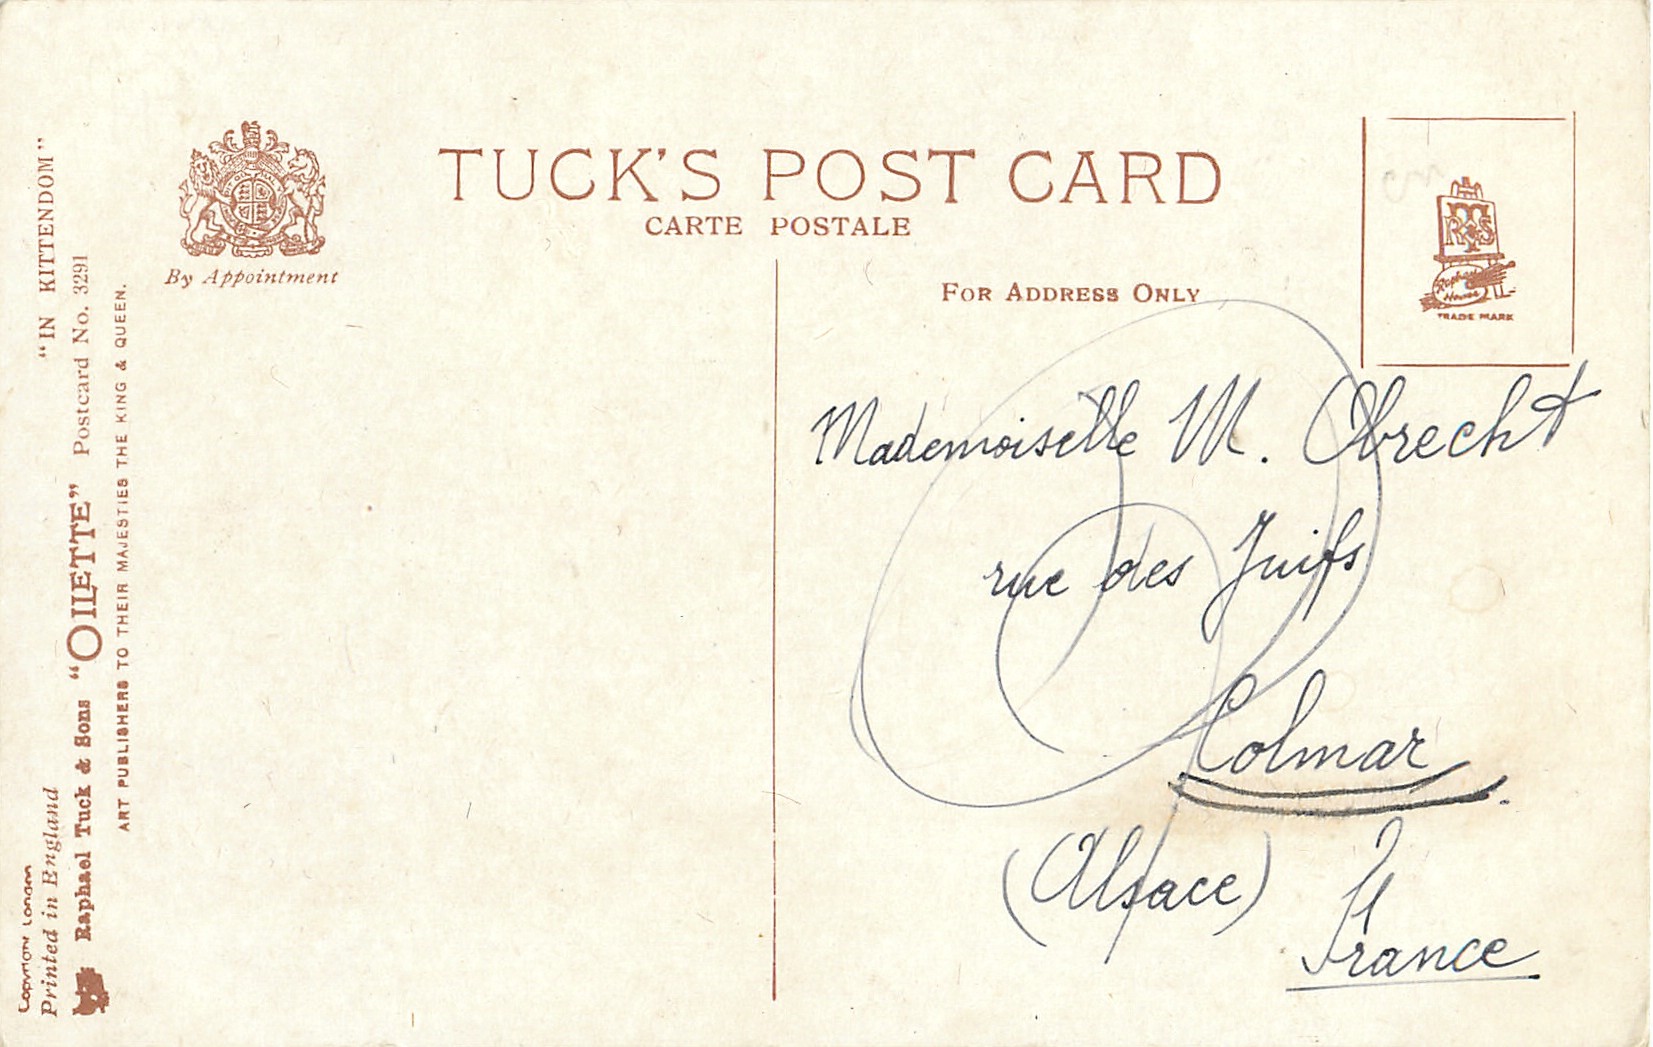 TUCK'S POST CARD
CARTE POSTALE
By Appointment
FOR ADDRESS ONLY
RTS
Raphael House
TRADE MARK
Mademoiselle M. Obrecht
rue des Juifs
Colmar
(Alsace)
France
"IN KITTENDOM"
Copyright London
Printed in England
Raphael Tuck & Sons "OILETTE" Postcard No. 3291
ART PUBLISHERS TO THEIR MAJESTIES THE KING & QUEEN.